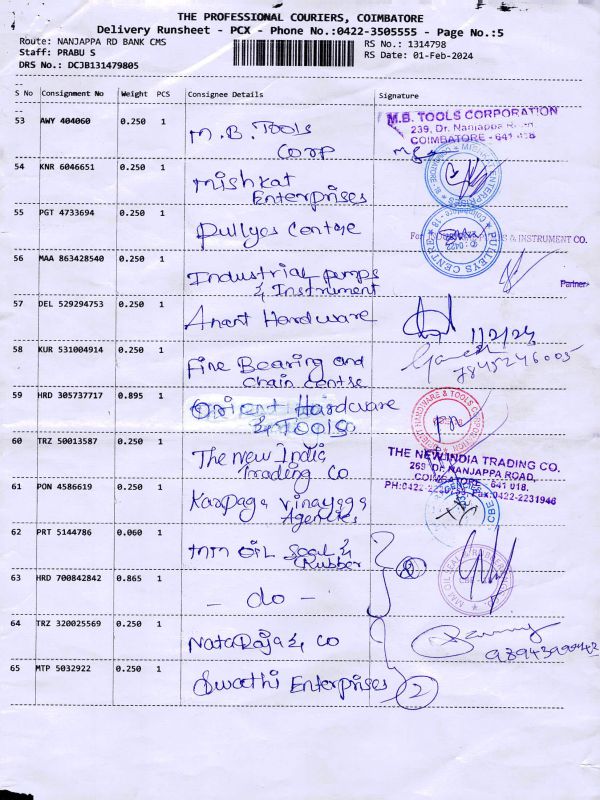 THE PROFESSIONAL COURIERS, COIMBATORE
Delivery Runsheet - PCX - Phone No.:0422-3505555 - Page No.:5
Route: NANJAPPA RD BANK CMS
RS No.: 1314798
Staff: PRABU S
RS Date: 01-Feb-2024
DRS No.: DCJB131479805
S No Consignment No Weight PCS Consignee Details Signature
53 AWY 404060 0.250 1 M.B. Tools
Corp
M.B. TOOLS CORPORATION
239, Dr. Nanjappa
COIMBATORE - 641 018
54 KNR 6046651 0.250 1 Mishkat
Enterprises
55 PGT 4733694 0.250 1 Pullyes Centre
PULLEYS CENTRE
& INSTRUMENT CO.
56 MAA 863428540 0.250 1 Industrial pumps
& Instrument
Partner
57 DEL 529294753 0.250 1 Anant Hardware
1/2/24
58 KUR 531004914 0.250 1 Fine Bearing and
Chain centre
Ganesh
7845246005
59 HRD 305737717 0.895 1 Orient Hardware
& Tools
HARDWARE & TOOLS CORPORATION
60 TRZ 50013587 0.250 1 The New India
Trading Co
THE NEW INDIA TRADING CO.
269 Dr. NANJAPPA ROAD,
COIMBATORE - 641 018.
PH:0422- Fax:0422-2231946
61 PON 4586619 0.250 1 Karpaga Vinayaga
Agencies
62 PRT 5144786 0.060 1 mm OIL Seal &
Rubber
2
63 HRD 700842842 0.865 1 - do -
64 TRZ 320025569 0.250 1 Nataraja & Co
65 MTP 5032922 0.250 1 Swathi Enterprises
2